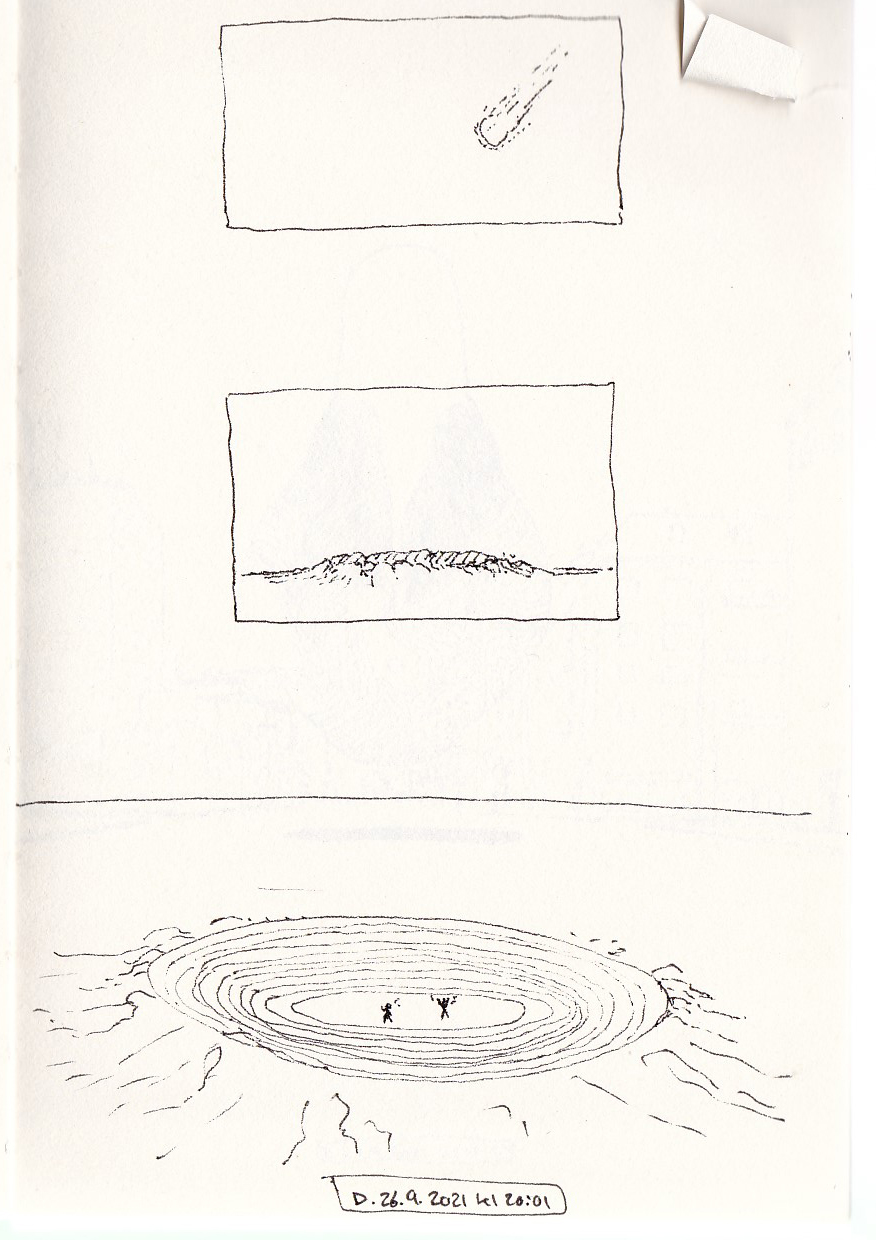 D. 26.9.2021 kl 20:01